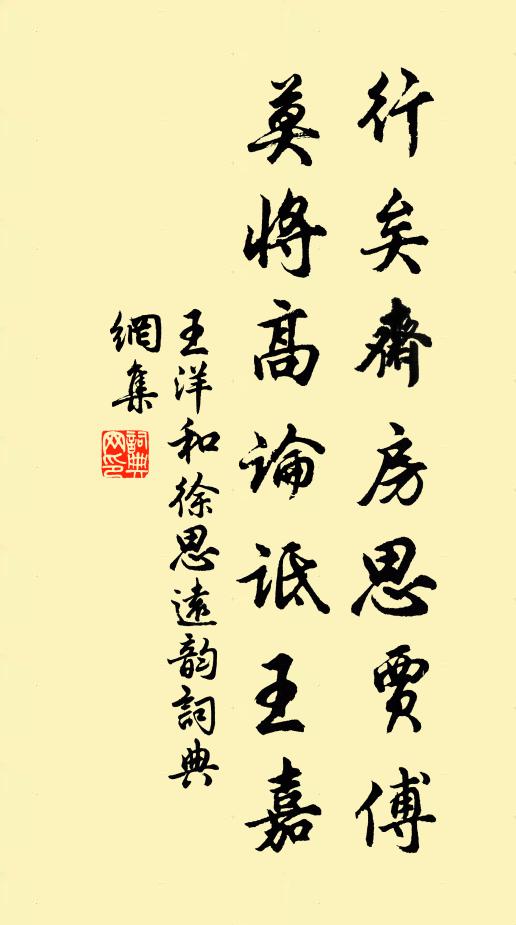 行矣齋房思賈傅
莫將高論詆王嘉
王洋和徐思遠韵詞典
網集
詞典網印